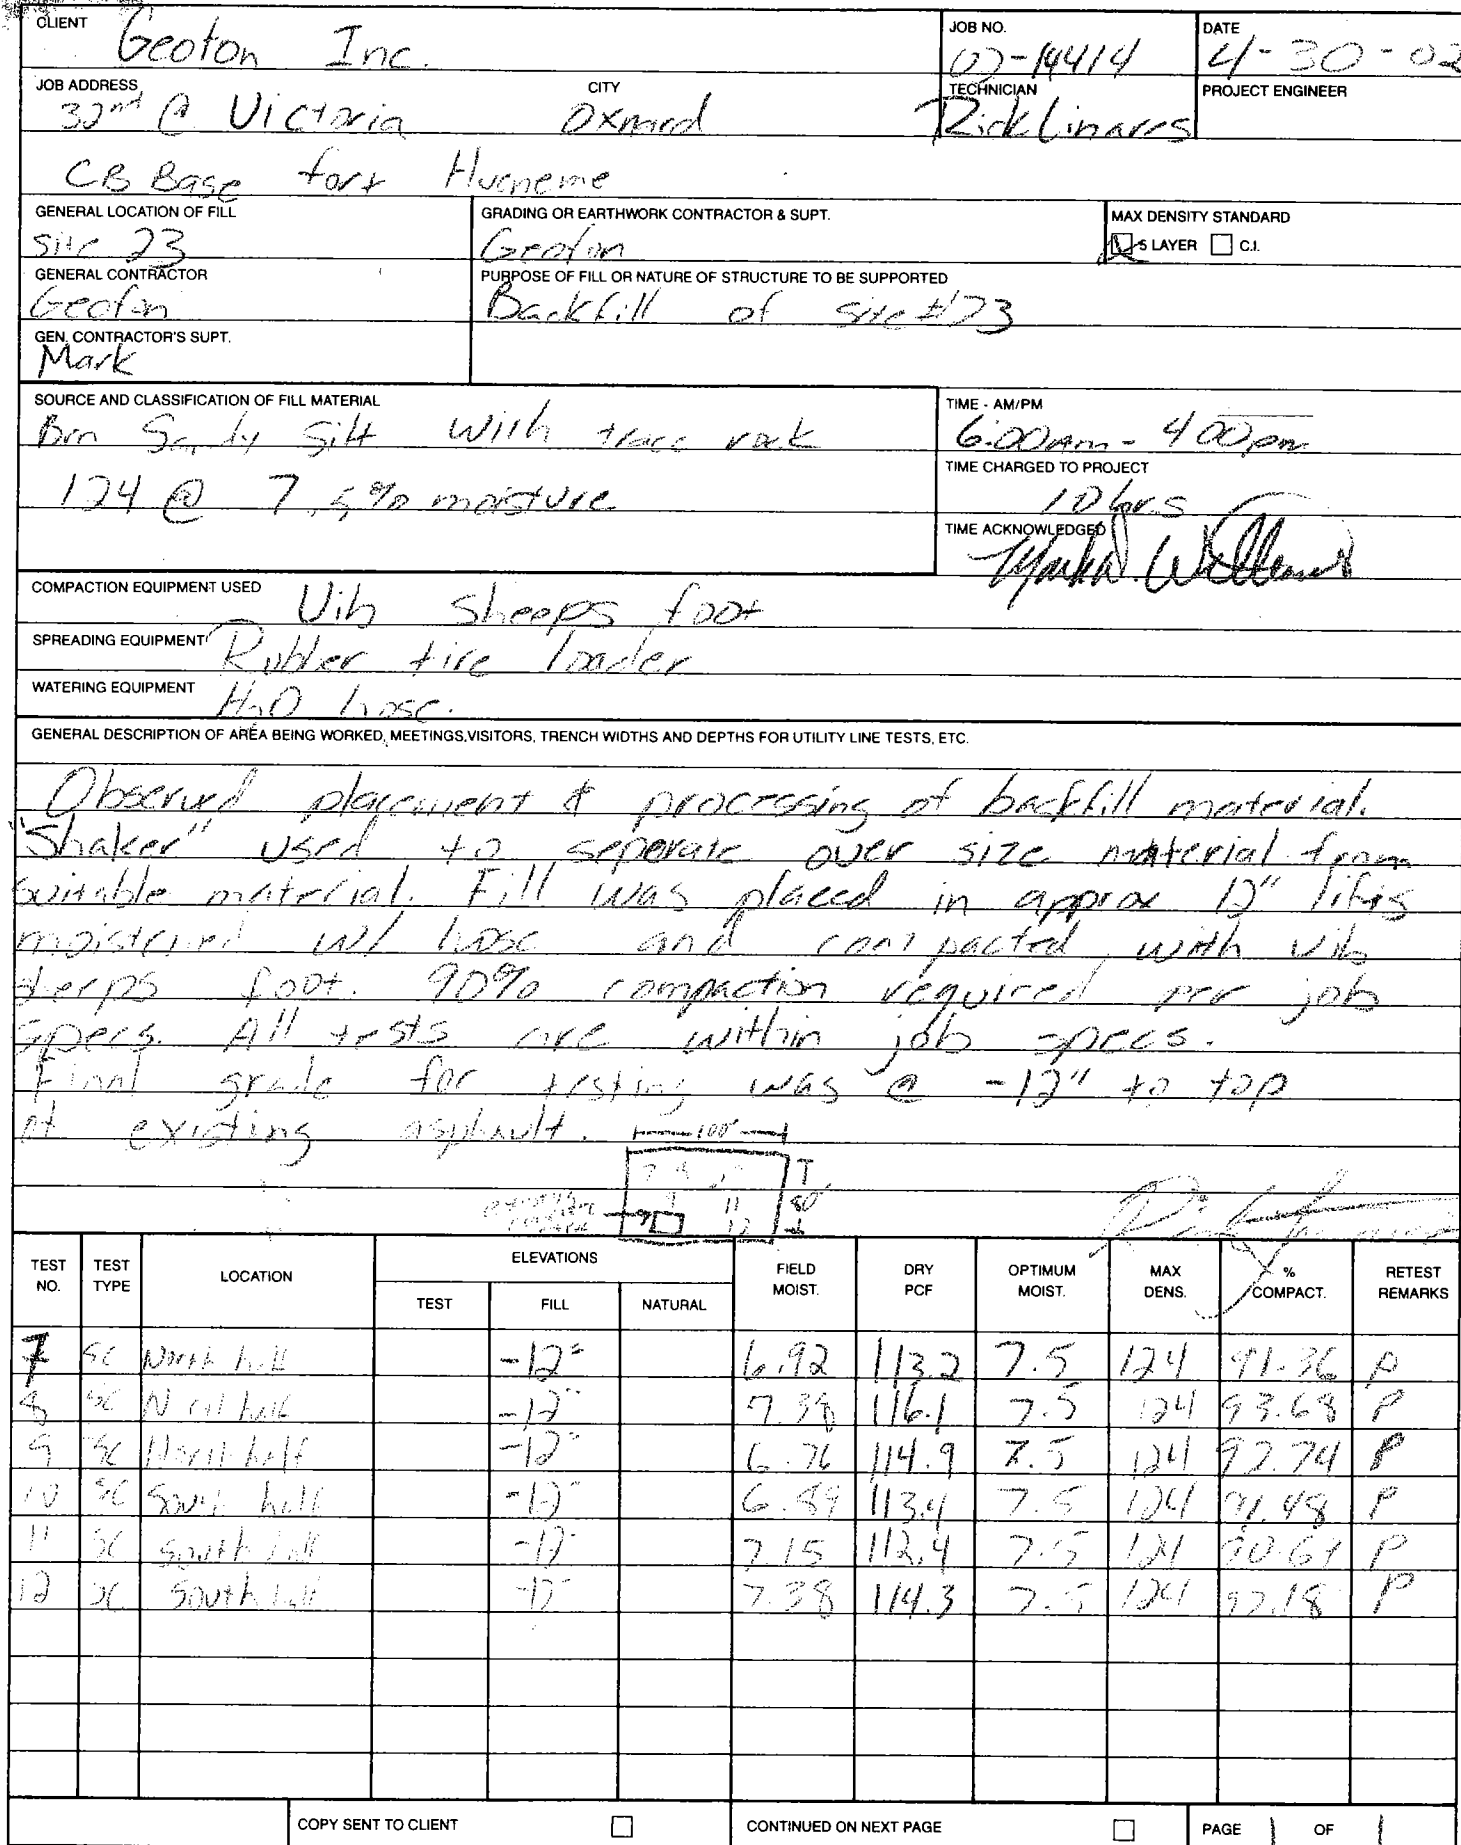 CLIENT Geoton Inc. JOB NO. 02-14414 DATE 4-30-02
JOB ADDRESS 32nd @ Victoria CITY Oxnard TECHNICIAN Rick Linares PROJECT ENGINEER
CB Base Port Hueneme
GENERAL LOCATION OF FILL GRADING OR EARTHWORK CONTRACTOR & SUPT. MAX DENSITY STANDARD
Site 23 Geofon 5 LAYER C.I.
GENERAL CONTRACTOR PURPOSE OF FILL OR NATURE OF STRUCTURE TO BE SUPPORTED
Geofon Backfill of site #23
GEN. CONTRACTOR'S SUPT.
Mark
SOURCE AND CLASSIFICATION OF FILL MATERIAL TIME - AM/PM
Brn Sandy Silt With trace rock 6:00am - 4 00pm
TIME CHARGED TO PROJECT
124 @ 7.5% moisture 10 hrs
TIME ACKNOWLEDGED
COMPACTION EQUIPMENT USED Vib Sheeps foot
SPREADING EQUIPMENT Rubber tire loader
WATERING EQUIPMENT H2O hose.
GENERAL DESCRIPTION OF AREA BEING WORKED, MEETINGS, VISITORS, TRENCH WIDTHS AND DEPTHS FOR UTILITY LINE TESTS, ETC.
Observed placement & processing of backfill material.
"Shaker" used to seperate over size material from
suitable material. Fill was placed in approx 12" lifts
moistened w/ hose and compacted with vib
sheeps foot. 90% compaction required per job
specs. All tests are within job specs.
Final grade for testing was @ -12" to top
of existing asphault. 100'
7 8
9 11 80'
12
TEST NO. TEST TYPE LOCATION ELEVATIONS TEST FILL NATURAL FIELD MOIST. DRY PCF OPTIMUM MOIST. MAX DENS. % COMPACT. RETEST REMARKS
7 SC North half -12" 6.92 113.2 7.5 124 91.36 P
8 SC North half -12" 7.38 116.1 7.5 124 93.68 P
9 SC North half -12" 6.76 114.9 7.5 124 92.74 P
10 SC South half -12" 6.89 113.4 7.5 124 91.48 P
11 SC South half -12" 7.15 112.4 7.5 124 90.69 P
12 SC South half -12" 7.38 114.3 7.5 124 92.18 P
COPY SENT TO CLIENT CONTINUED ON NEXT PAGE PAGE 1 OF 1